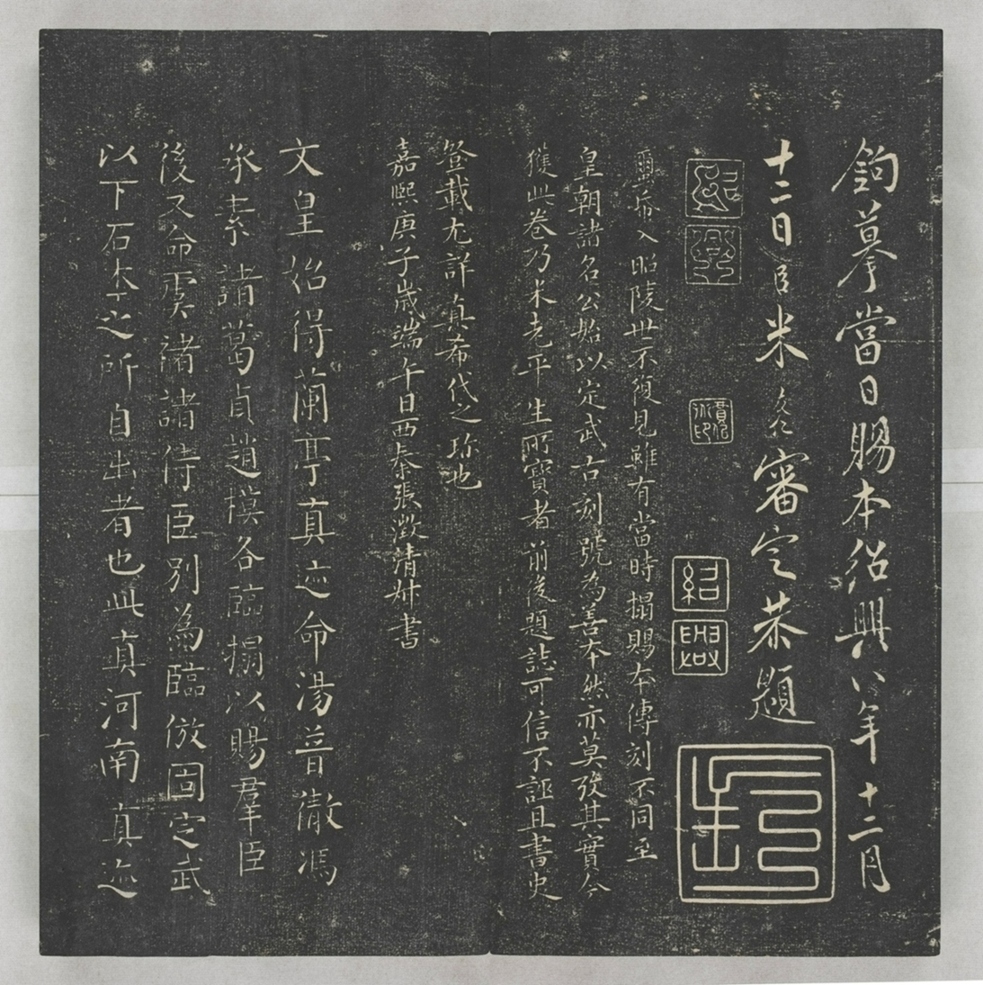 鉤摹當日賜本紹興八年十二月
十二日臣米友仁審定恭題
紹興
繭帋入昭陵世不復見雖有當時搨賜本傳刻不同至
皇朝諸名公始以定武古刻號為善本然亦莫攷其實今
獲此卷乃米老平生所寶者前後題誌可信不誣且書史
登載尤詳真希代之珎也
嘉熙庚子歲端午日西秦張澂清書
文皇紿得蘭亭真迹命湯普徹馮
承素諸葛貞趙模各臨搨以賜羣臣
後又命虞褚諸侍臣別為臨倣固定武
以下石本之所自出者也此真河南真迹